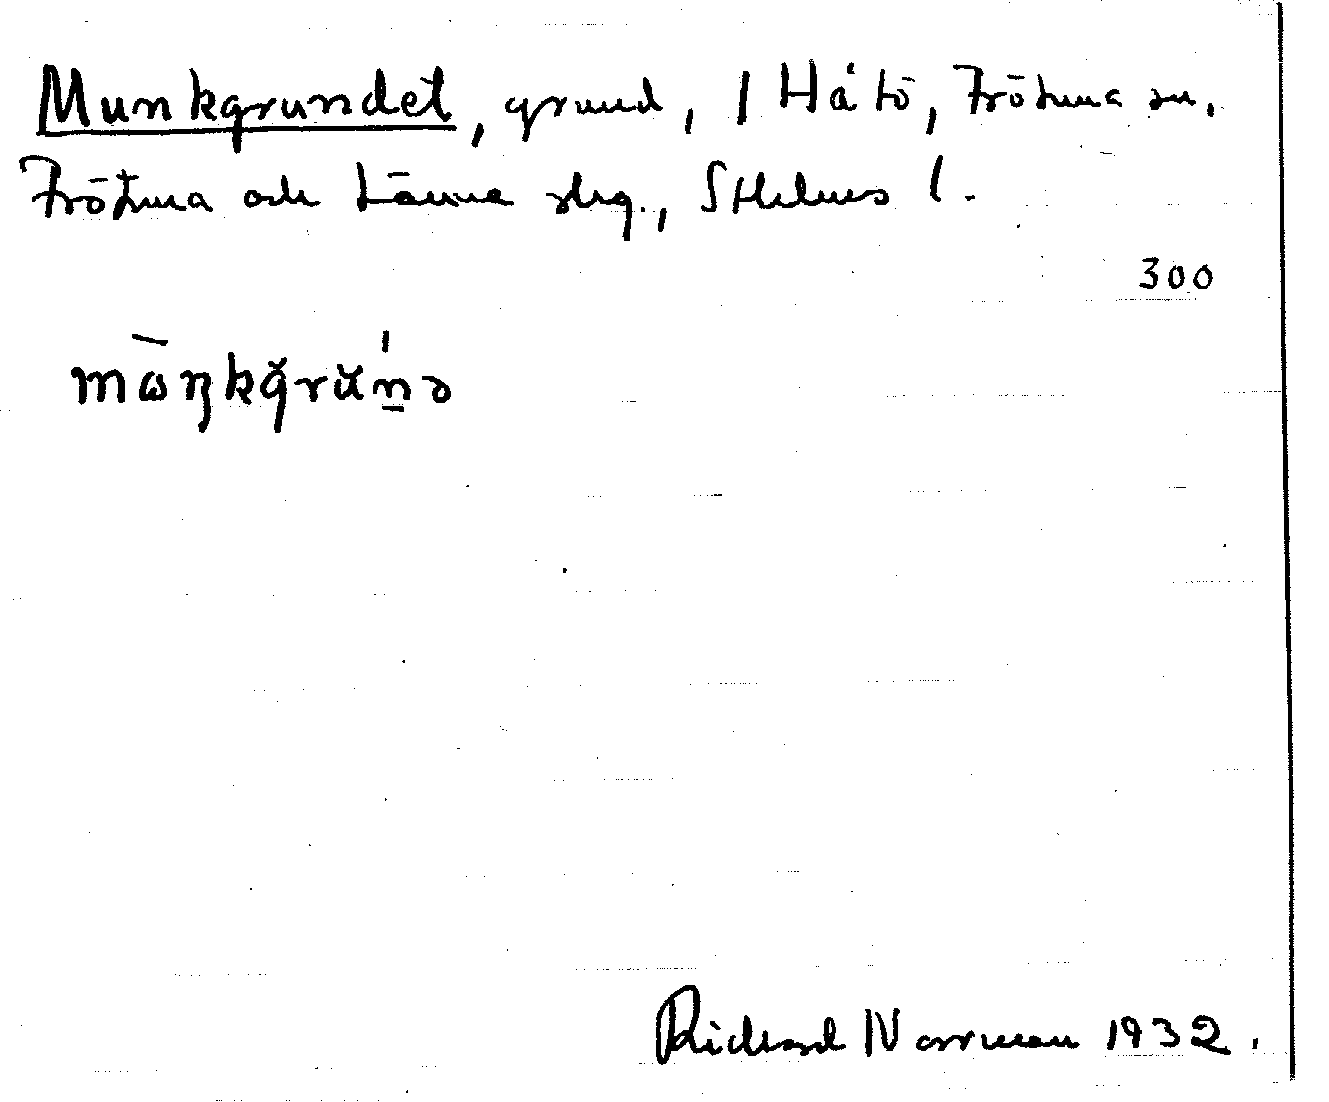 Munkgrundet, grund, / Håtö, Frötuna sn,
Frötuna och Länna skg., Sthlms l.
300
mωŋkgrŭnə
Richard Norrman 1932.